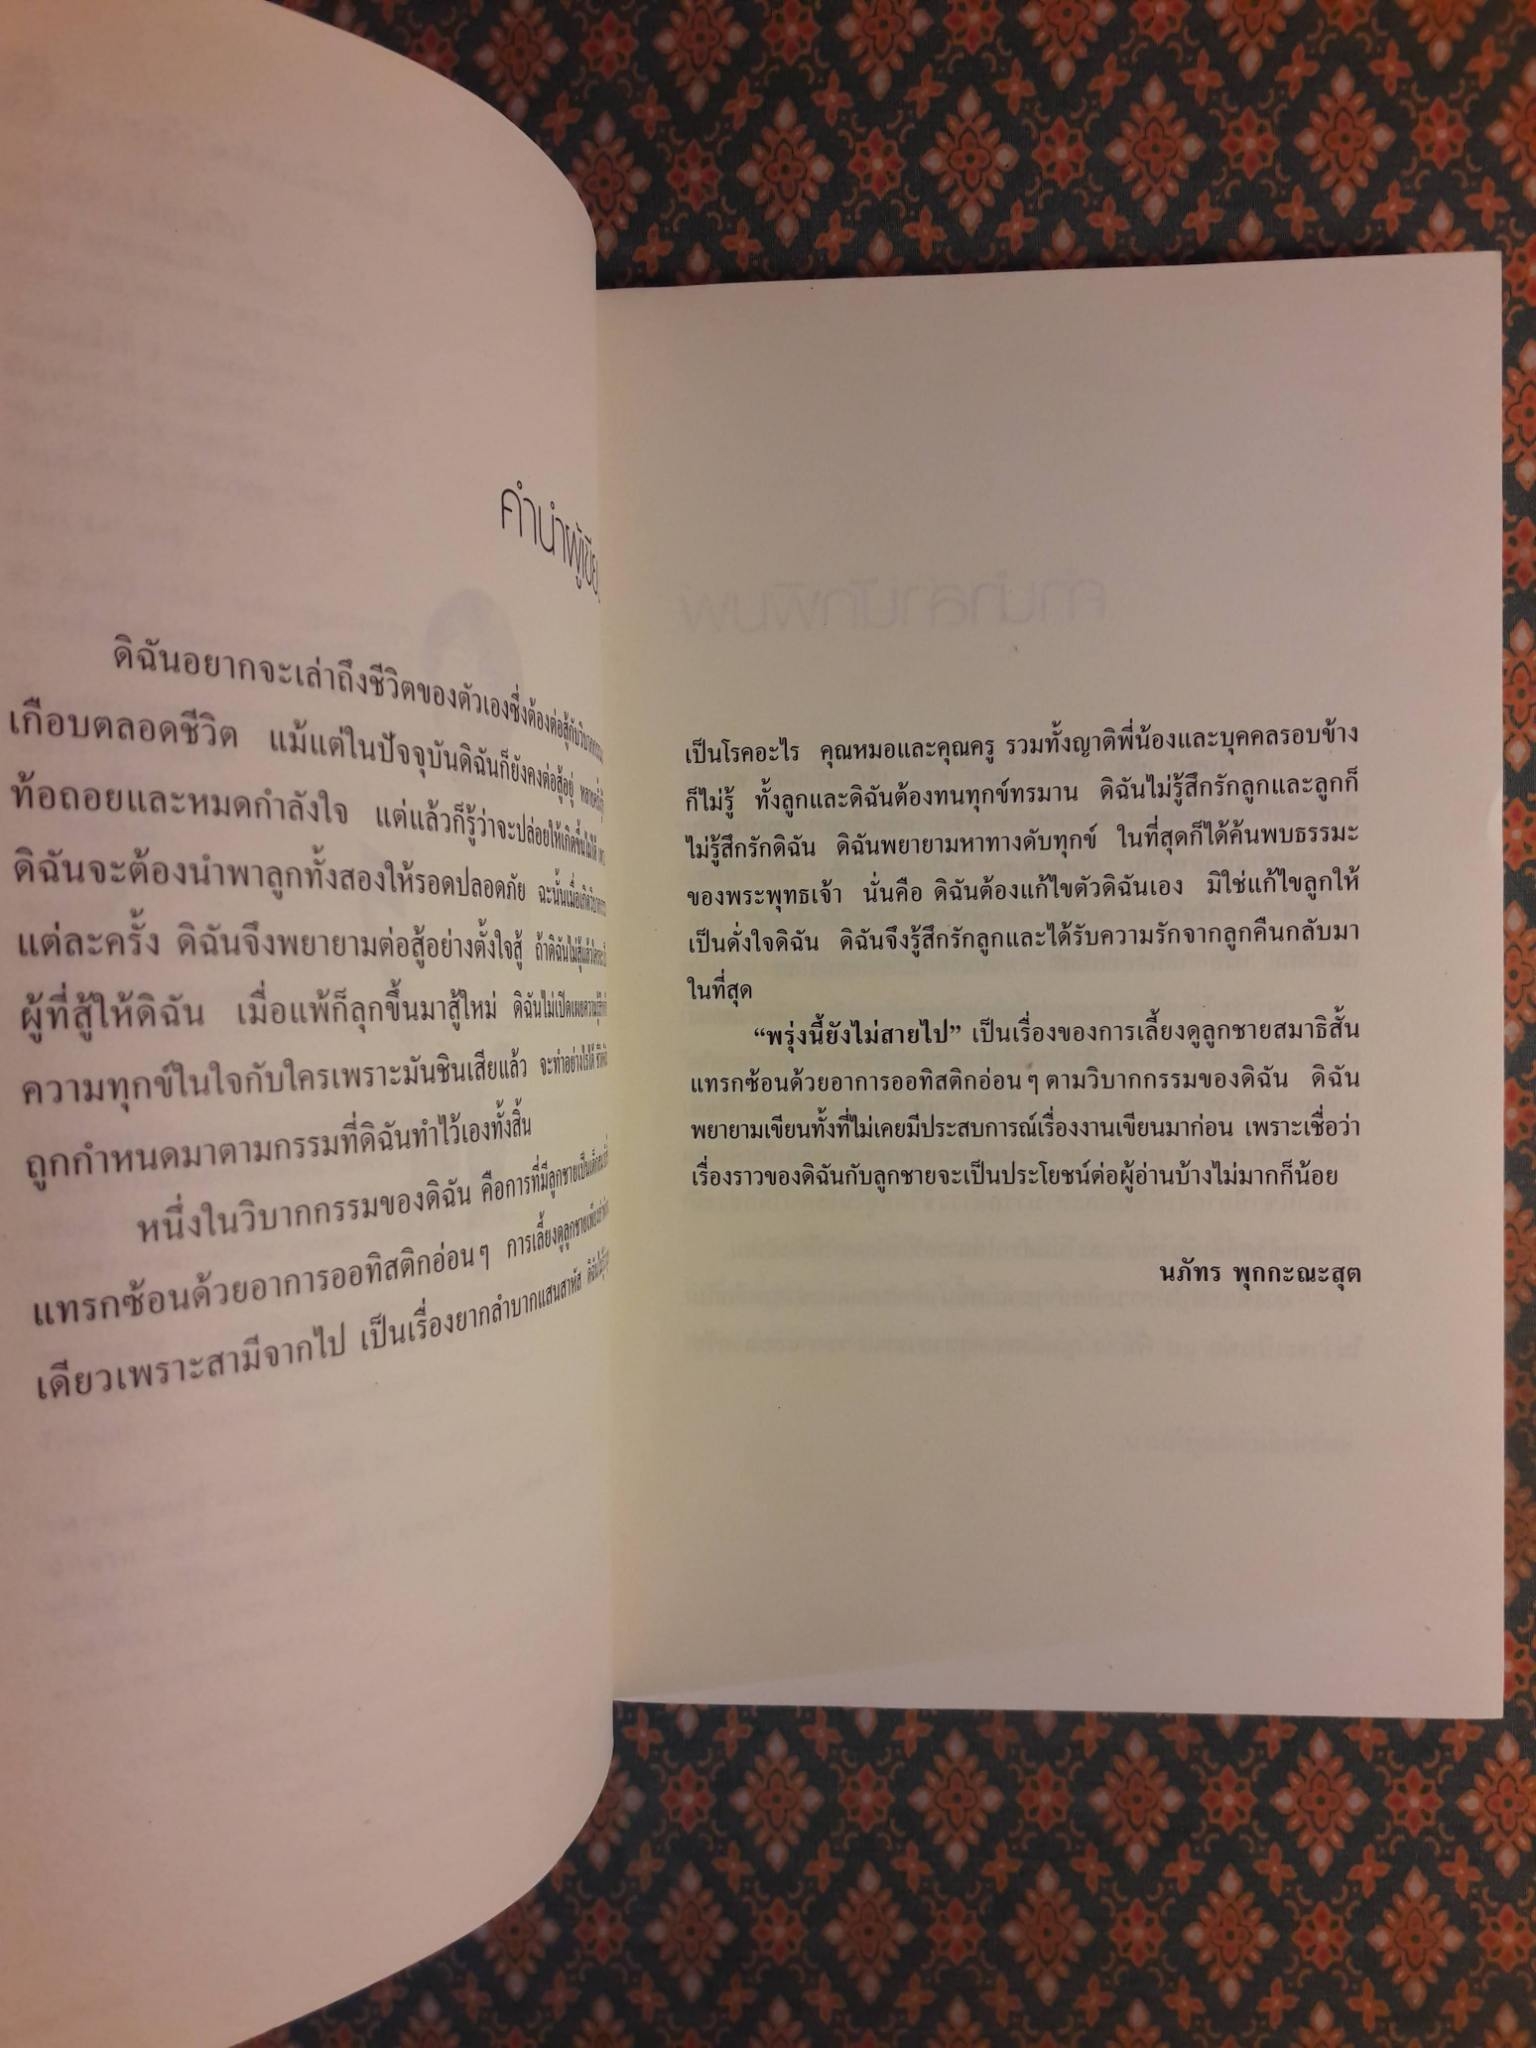 คำนำผู้เขีย
ดิฉันอยากจะเล่าถึงชีวิตของตัวเองซึ่งต้องต่อสู้กับวิบากกรรม
เกือบตลอดชีวิต แม้แต่ในปัจจุบันดิฉันก็ยังคงต่อสู้อยู่ หลายครั้งที่
ท้อถอยและหมดกำลังใจ แต่แล้วก็รู้ว่าจะปล่อยให้เกิดขึ้นไม่ได้
ดิฉันจะต้องนำพาลูกทั้งสองให้รอดปลอดภัย ฉะนั้นเมื่อเกิดวิบากกรรม
แต่ละครั้ง ดิฉันจึงพยายามต่อสู้อย่างตั้งใจสู้ ถ้าดิฉันไม่สู้แล้วใครจะ
ผู้ที่สู้ให้ดิฉัน เมื่อแพ้ก็ลุกขึ้นมาสู้ใหม่ ดิฉันไม่เปิดเผยความรู้สึก
ความทุกข์ในใจกับใครเพราะมันชินเสียแล้ว จะทำอย่างไรได้
ถูกกำหนดมาตามกรรมที่ดิฉันทำไว้เองทั้งสิ้น
หนึ่งในวิบากกรรมของดิฉัน คือการที่มีลูกชายเป็นเด็กสมาธิ
แทรกซ้อนด้วยอาการออทิสติกอ่อนๆ การเลี้ยงดูลูกชายเพียงลำพัง
เดียวเพราะสามีจากไป เป็นเรื่องยากลำบากแสนสาหัส
เป็นโรคอะไร คุณหมอและคุณครู รวมทั้งญาติพี่น้องและบุคคลรอบข้าง
ก็ไม่รู้ ทั้งลูกและดิฉันต้องทนทุกข์ทรมาน ดิฉันไม่รู้สึกรักลูกและลูกก็
ไม่รู้สึกรักดิฉัน ดิฉันพยายามหาทางดับทุกข์ ในที่สุดก็ได้ค้นพบธรรมะ
ของพระพุทธเจ้า นั่นคือ ดิฉันต้องแก้ไขตัวดิฉันเอง มิใช่แก้ไขลูกให้
เป็นดั่งใจดิฉัน ดิฉันจึงรู้สึกรักลูกและได้รับความรักจากลูกคืนกลับมา
ในที่สุด
“พรุ่งนี้ยังไม่สายไป” เป็นเรื่องของการเลี้ยงดูลูกชายสมาธิสั้น
แทรกซ้อนด้วยอาการออทิสติกอ่อนๆ ตามวิบากกรรมของดิฉัน ดิฉัน
พยายามเขียนทั้งที่ไม่เคยมีประสบการณ์เรื่องงานเขียนมาก่อน เพราะเชื่อว่า
เรื่องราวของดิฉันกับลูกชายจะเป็นประโยชน์ต่อผู้อ่านบ้างไม่มากก็น้อย
นภัทร พุกกะณะสุต